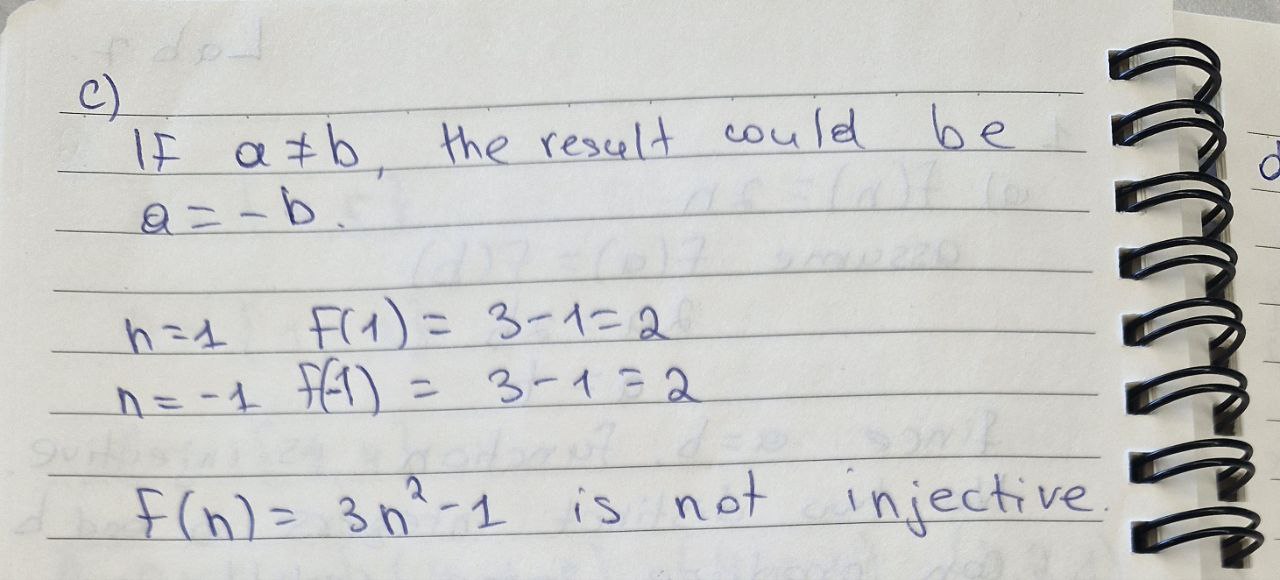 c)
If a ≠ b, the result could be
a = - b.
n = 1 f(1) = 3 - 1 = 2
n = - 1 f(-1) = 3 - 1 = 2
f(n) = 3n² - 1 is not injective.